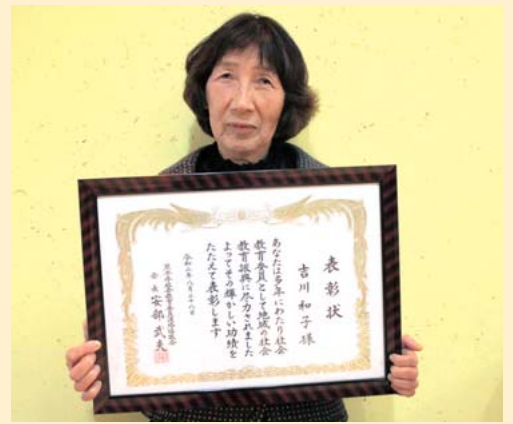 表彰状
吉川和子様
あなたは多年にわたり社会
教育委員として地域の社会
教育振興に尽力されました
よってその輝かしい功績を
たたえて表彰します
令和二年八月二十八日
会長 安部武夫